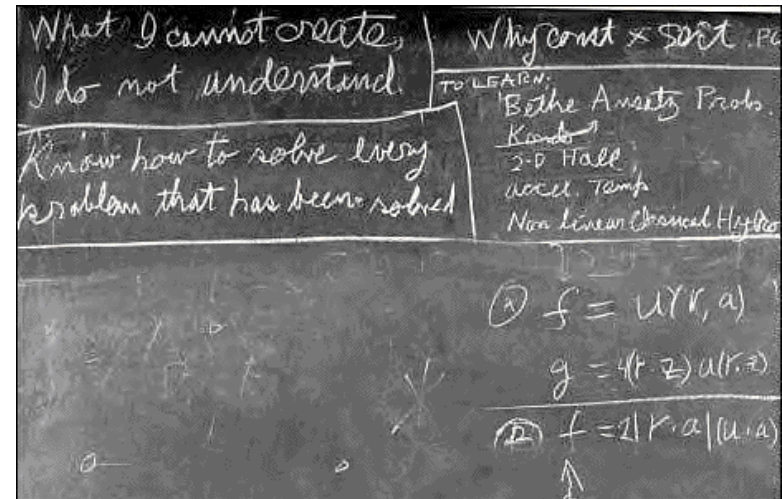 What I cannot create,
I do not understand.
Know how to solve every
problem that has been solved
Why const × sort . PO
TO LEARN:
Bethe Ansatz Probs.
Kondo
2-D Hall
accel. Temp
Non linear Classical Hydro
f = u(r, a)
g = 4(r·z) u(r·z)
f = 2|r·a|(u·a)